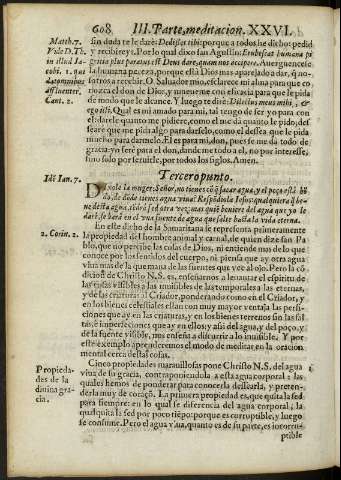 608 III. Parte, meditacion. XXVI.
Match. 7.
Vide D. Th.
in illud Ia-
cobi. 1. qui
affluenter.
Cant. 2.
sin duda te le daré: Dedistes tibi: porque a todos he dicho: pedid,
y recibireys. Por lo qual dixo san Agustin: Erubescat humana pi
gracia plus paratus est Deus dare, quam nos accipere. Auerguencese
la humana pereza, porque está Dios mas aparejado a dar, q̃ no-
sotros a recebir. O Saluador mio, esclarece mi alma para que co-
nozca el don de Dios, y mueneme con eficacia para que le pida
de modo que le alcance. Y luego te diré: Dilectus meus mihi, &
ego illi. Qual es mi amado para mi, tal tengo de ser yo para con
el: darele quanto me pidiere, como el me da quanto le pido, des
seare que me pida algo para darselo, como el dessea que le pida
mucho para darmelo. El es para mi don, pues se me da todo de
gracia: yo seré para el don, dandome todo a el, no por interesse,
sino solo por seruirle, por todos los siglos. Amen.
Tercero punto.
Ioã. 7.
Dixole la muger: Señor, no tienes cõ q̃ sacar agua, y el poço está hõ
do, de dõde tienes agua viua? Respõdiola Iesus: qualquiera q̃ be-
ue desta agua, tẽdra sed otra vez, mas quiẽ beuiere del agua que yo le
daré, se hará en el vna fuente de agua que salte hasta la vida eterna.
2. Corin. 2.
En este dicho de la Samaritana se representa primeramente
la propiedad del hombre animal y carnal, de quien dize san Pa
blo, que no percibe las cosas de Dios, ni entiende mas de lo que
conoce por los sentidos del cuerpo, ni piensa que ay otra agua
viua mas de la que mana de las fuentes que vee al ojo. Pero la cõ
diciõ de Christo N. S. es, enseñarnos a leuantar el espiritu de
las cosas visibles a las inuisibles, de las temporales a las eternas,
y de las criaturas al Criador, ponderando como en el Criador, y
en los bienes celestiales estan con muy mayor ventaja las perfe-
ciones que ay en las criaturas, y en los bienes terrenos sin las fal
tas, è imperfecciones que ay en ellos; y assi del agua, y del poço, y
de la fuente visible, nos enseña a discurrir a lo inuisible. Y por
este exemplo aprenderemos el modo de meditar en la oracion
mental cerca destas cosas.
Propieda-
des de la
diuina gra-
cia.
Cinco propiedades marauillosas pone Christo N. S. del agua
viua de su gracia, contraponiendola a esta agua corporal: las
quales hemos de ponderar para conocerla dessearla, y preten-
derla muy de coraçõ. La primera propiedad es, que quita la sed
para siempre: en lo qual se diferencia del agua corporal; la
qual quita la sed por poco tiẽpo: porque es corruptible, y luego
se consume. Pero el agua viua, quanto es de su parte, es incorru-
ptible